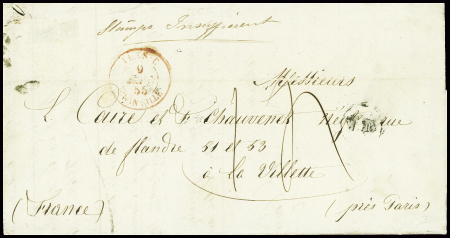 Stamps Insufficient
Messieurs
L. Caire et F. Chauvenet
de flandre 51 et 53
à la Villette
(France) (près Paris)